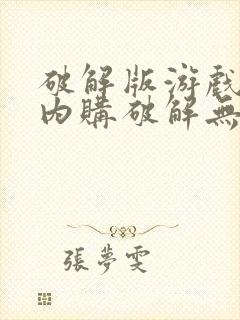 破解版游戲
內購破解無
張夢雯